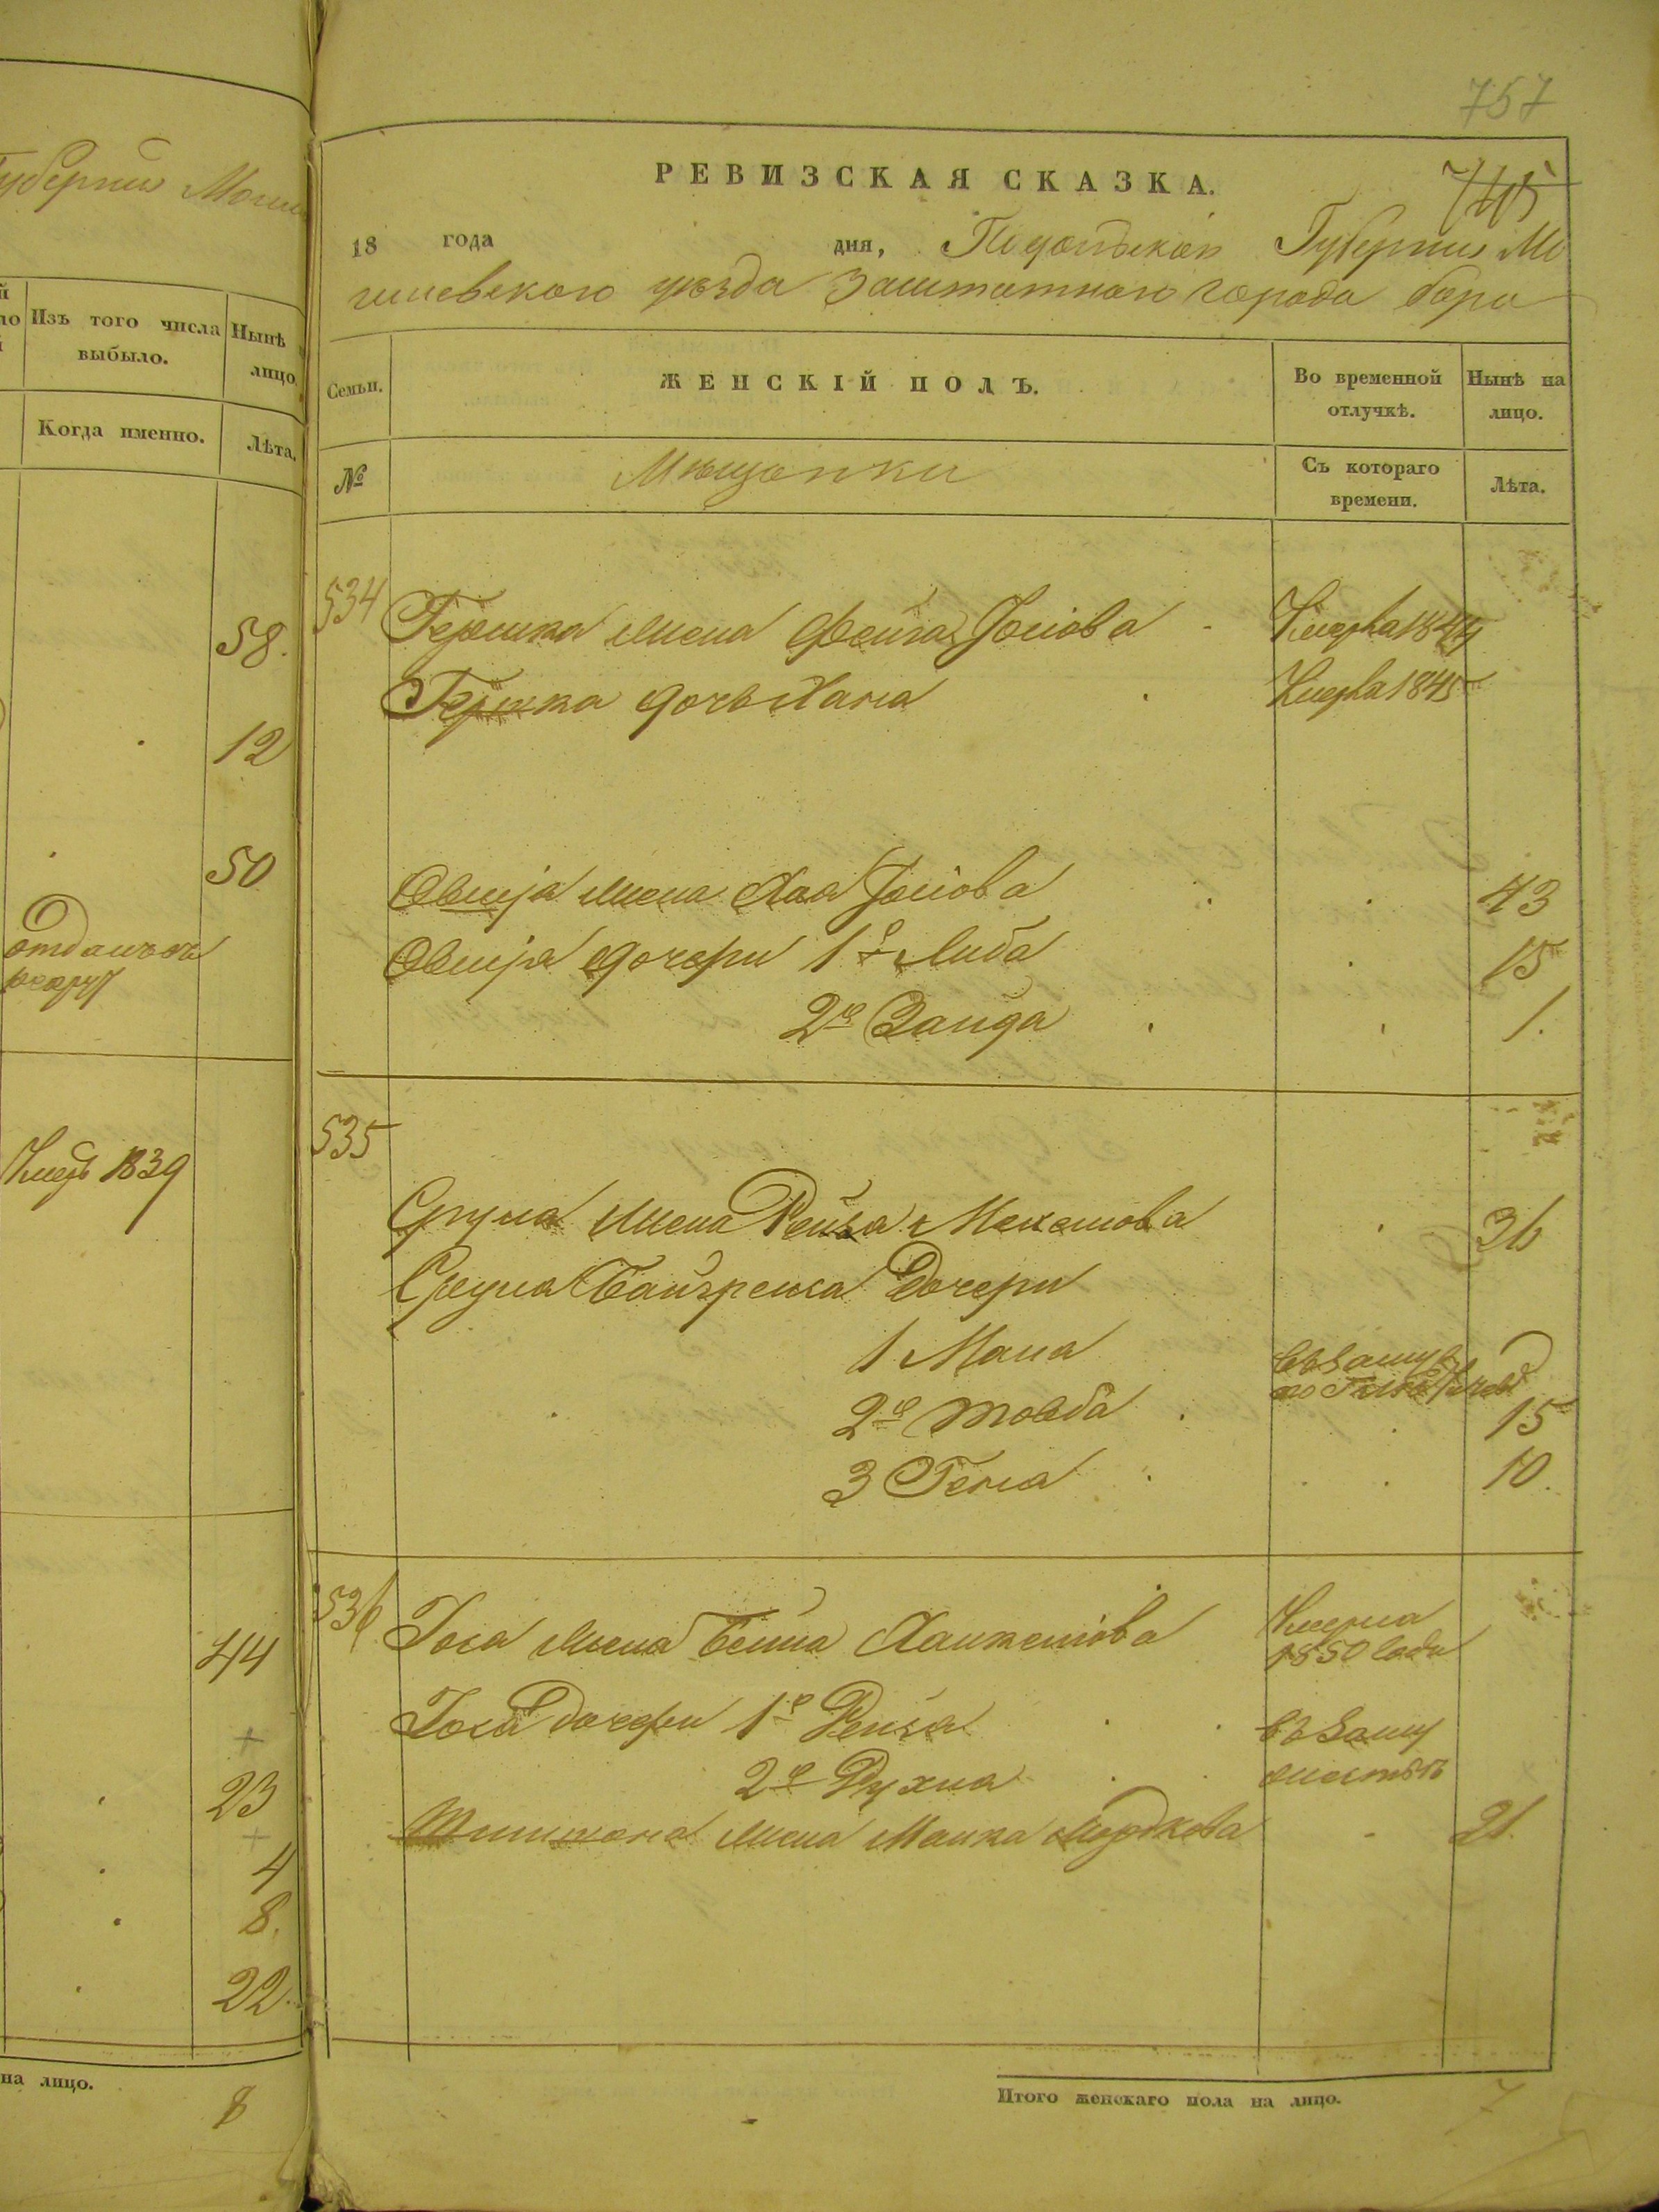 Губерніи Моги
Изъ того числа
выбыло.
Нынѣ
лицо
Когда именно.
Лѣта.
58.
12
50
отданъ въ
Умеръ 1839
44
23
4
8.
22.
на лицо.
8
757
РЕВИЗСКАЯ СКАЗКА.
745
18 года дня, Подольской Губерніи Мо
гилевского уѣзда Заштатного города бара
Семьи.
ЖЕНСКІЙ ПОЛЪ.
Во временной
отлучкѣ.
Нынѣ на
лицо.
№
Мѣщанки
Съ котораго
времени.
Лѣта.
534
Гершка жена Фейга Іосіова Умерла 1844
Гершка дочь Хана Умерла 1845
Овшія жена Хая Іосіова 43
Овшія дочери 1я Либа 15
2я Зайда 1.
535
Сруля жена Рейза Мекешова 36
Сруля Дочери
1 Маня въ замуж
2я Товба 15
3 Геня 10.
536
Іося жена Бейла Умерла
1850 года
Іося дочери 1я Рейза въ заму
2я Рухля жествѣ
жена Малка Мордкова 21.
Итого женскаго пола на лицо.
7